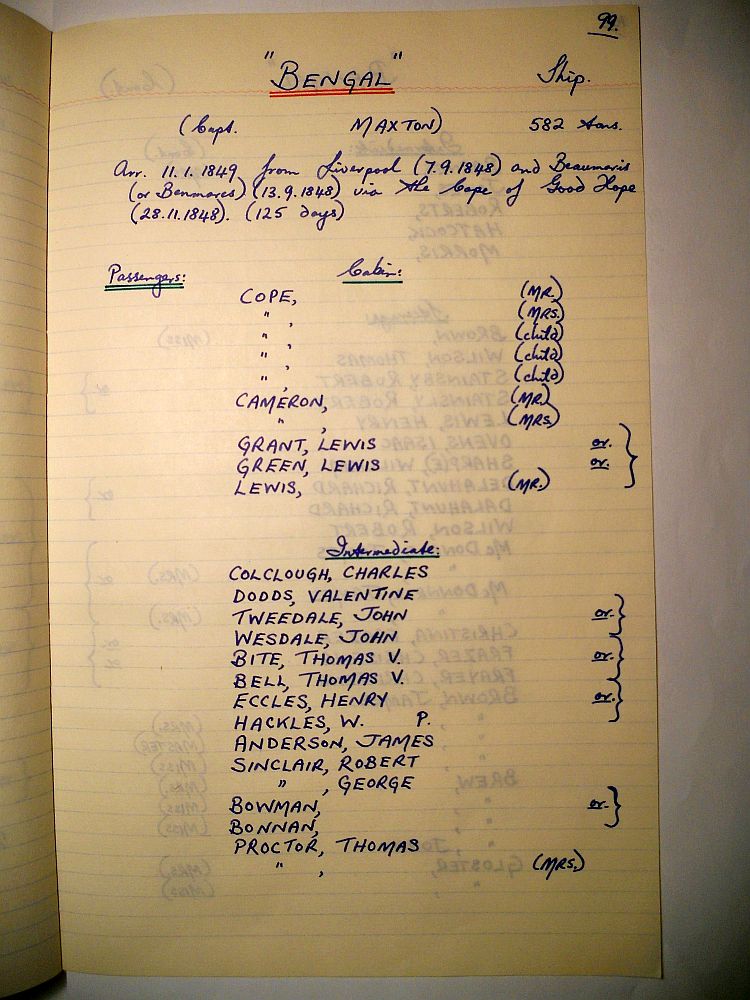 99.
"BENGAL" Ship.
(Capt. MAXTON) 582 tons.
Arr. 11.1.1849 from Liverpool (7.9.1848) and Beaumaris
(or Benmares) (13.9.1848) via the Cape of Good Hope
(28.11.1848). (125 days)
Passengers: Cabin:
COPE, (MR.)
" , (MRS.)
" , (child)
" , (child)
" , (child)
CAMERON, (MR)
" , (MRS)
GRANT, LEWIS or. }
GREEN, LEWIS or.
LEWIS, (MR.)
Intermediate:
COLCLOUGH, CHARLES
DODDS, VALENTINE
TWEEDALE, JOHN or. }
WESDALE, JOHN
BITE, THOMAS V. or. }
BELL, THOMAS V.
ECCLES, HENRY or. }
HACKLES, W. P.
ANDERSON, JAMES
SINCLAIR, ROBERT
" , GEORGE
BOWMAN, or. }
BONNAN,
PROCTOR, THOMAS
" , (MRS.)